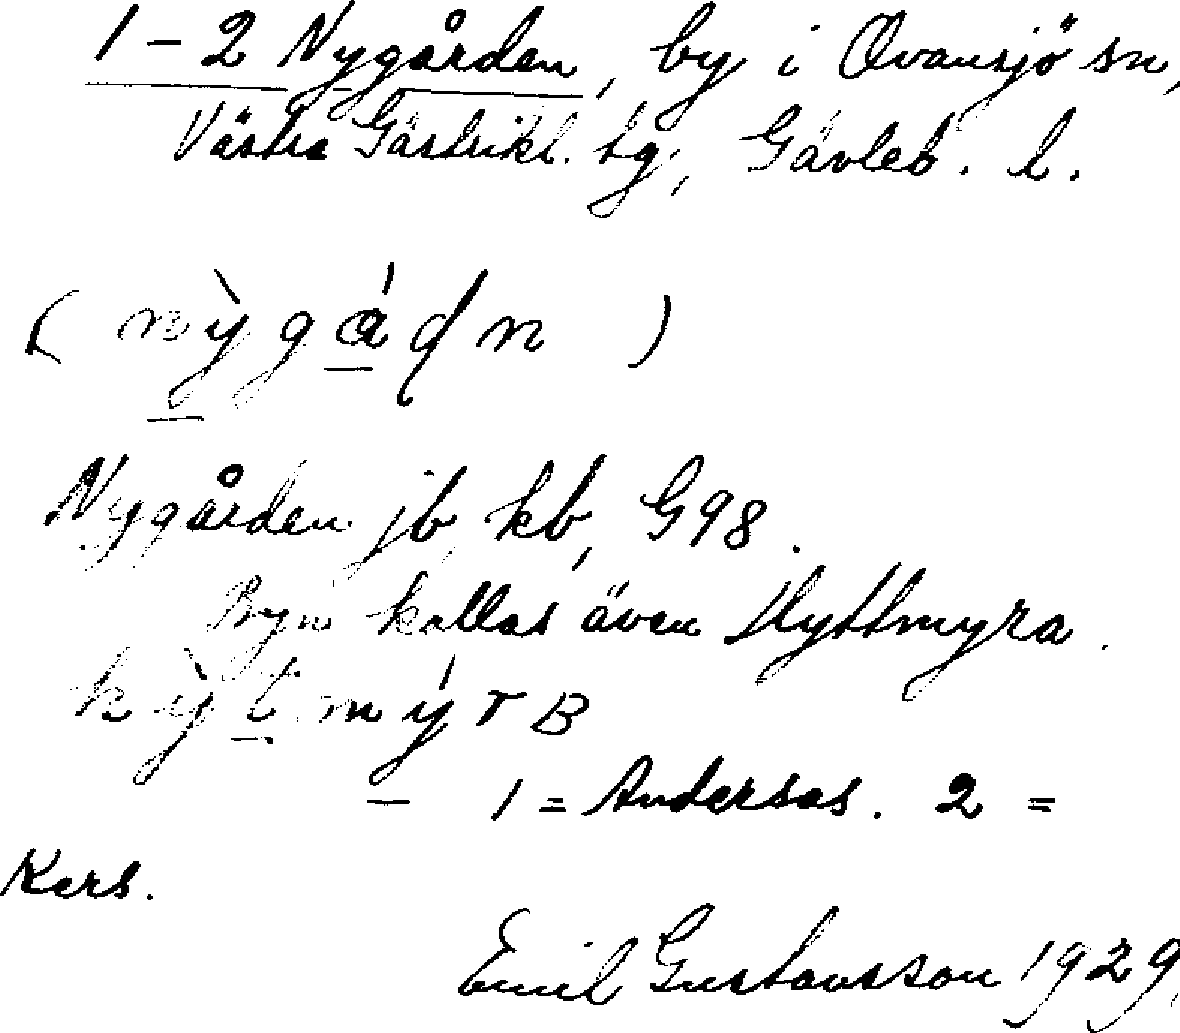 1 - 2 Nygården, by i Ovansjö sn,
Västra Gästrikl. tg, Gävleb. l.
( nỳgádn )
Nygården jb, kb, G98.
Byn kallas även Hyttmyra.
hỳtmýrB
1 = Andersas. 2 =
Kers.
Emil Gustavsson 1929.